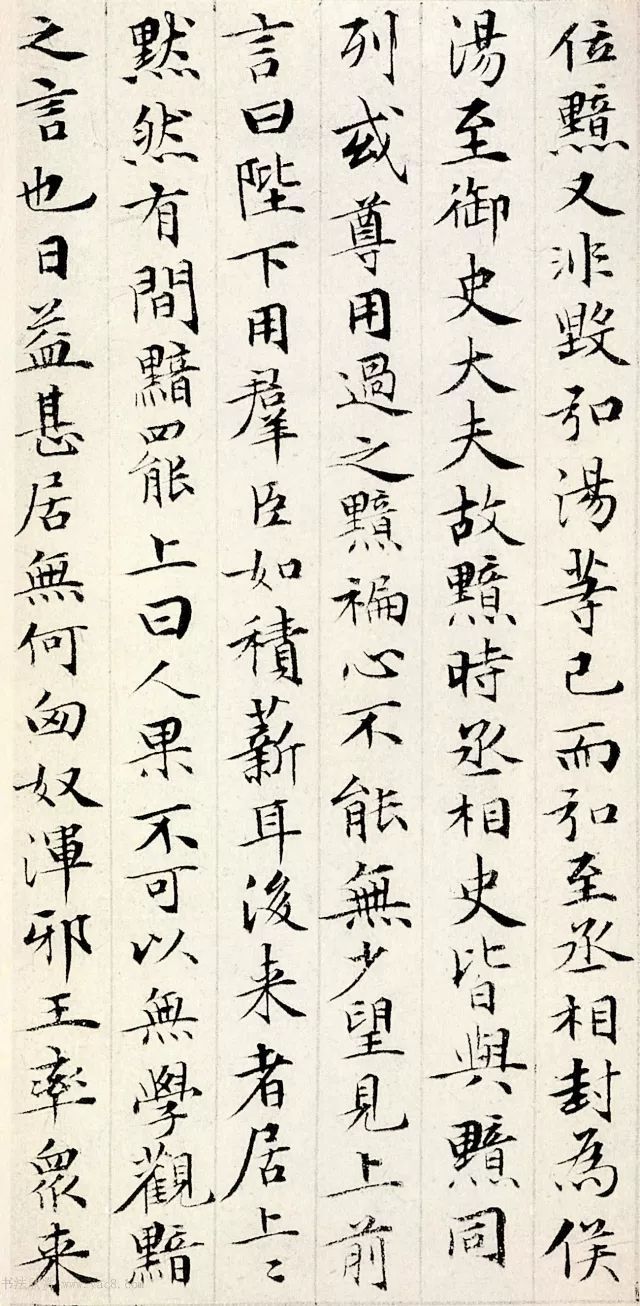 位黯又非毀弘湯等已而弘至丞相封為侯
湯至御史大夫故黯時丞相史皆與黯同
列或尊用過之黯褊心不能無少望見上前
言曰陛下用群臣如積薪耳後来者居上〻
黙然有間黯罷上曰人果不可以無學觀黯
之言也日益甚居無何匈奴渾邪王率衆来